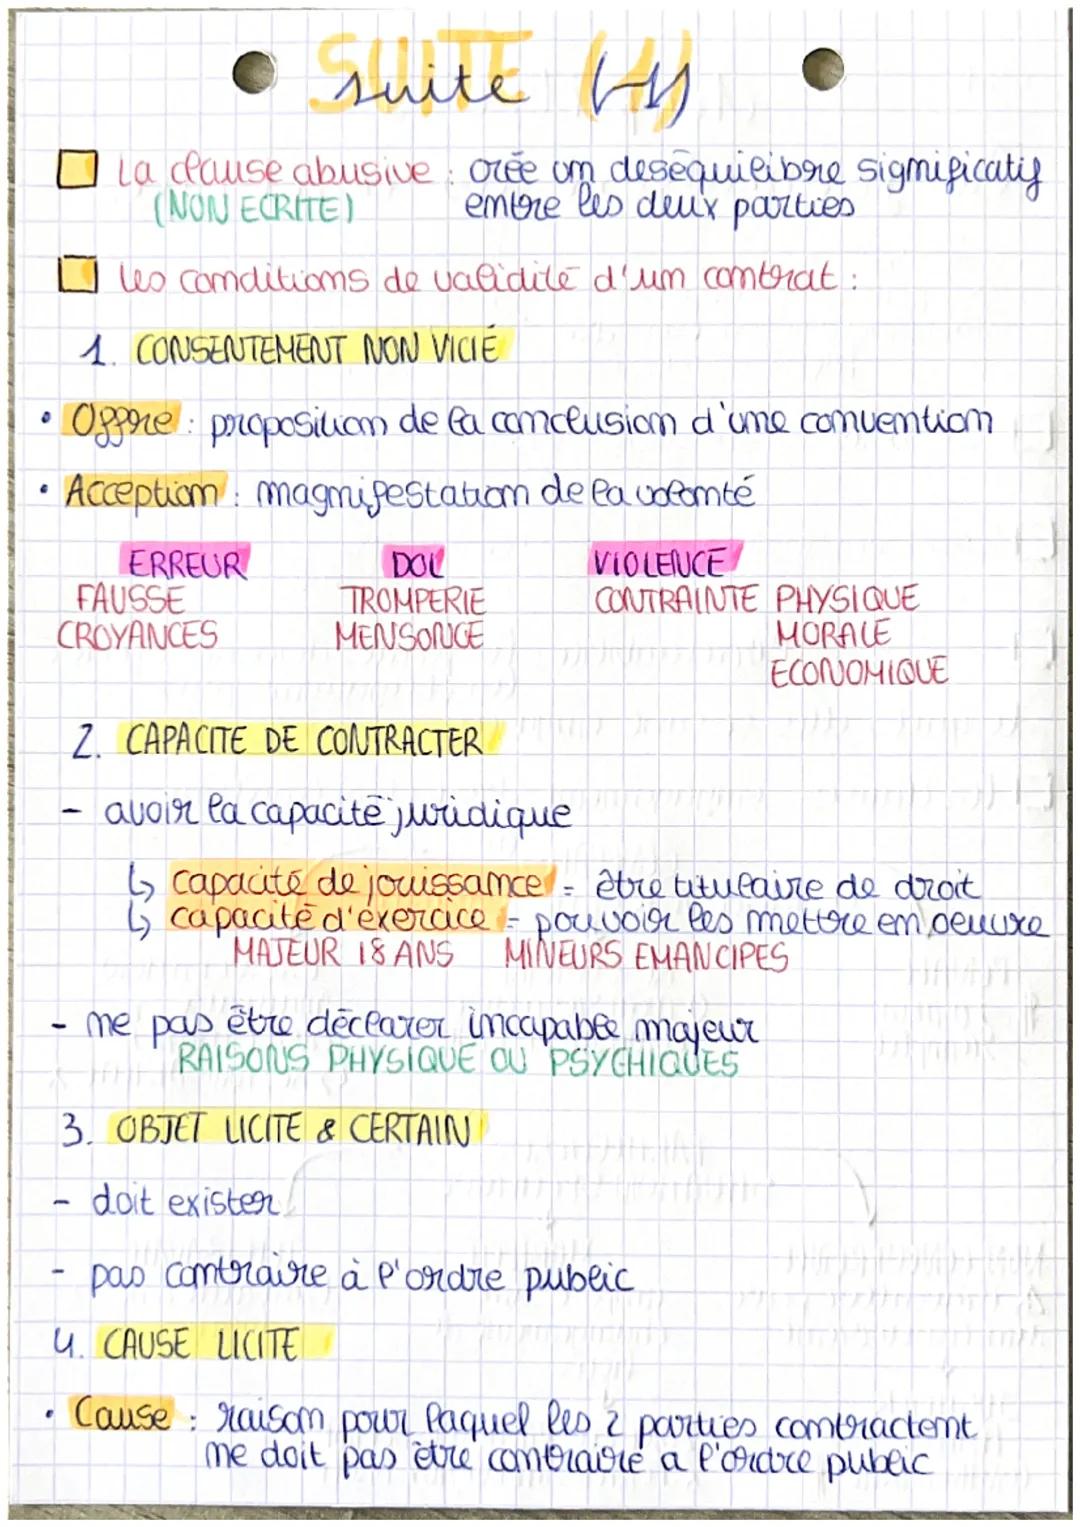 SUITE (4)
suite (4)
La clause abusive : crée un deséquilibre significatif
(NON ECRITE) entre les deux parties
les conditions de validité d'un contrat :
1. CONSENTEMENT NON VICIÉ
• Offre : proposition de la conclusion d'une convention
• Acception : magnifestation de la volonté
ERREUR DOL VIOLENCE
FAUSSE TROMPERIE CONTRAINTE PHYSIQUE
CROYANCES MENSONGE MORALE
ECONOMIQUE
2. CAPACITE DE CONTRACTER
- avoir la capacité juridique
↳ capacité de jouissance = être titulaire de droit
↳ capacité d'exercice = pouvoir les mettre en oeuvre
MAJEUR 18 ANS MINEURS EMANCIPES
- ne pas être déclarer incapable majeur
RAISONS PHYSIQUE OU PSYCHIQUES
3. OBJET LICITE & CERTAIN
- doit exister
- pas contraire à l'ordre public
4. CAUSE LICITE
• Cause : raison pour laquel les 2 parties contractent
ne doit pas être contraire a l'ordre public